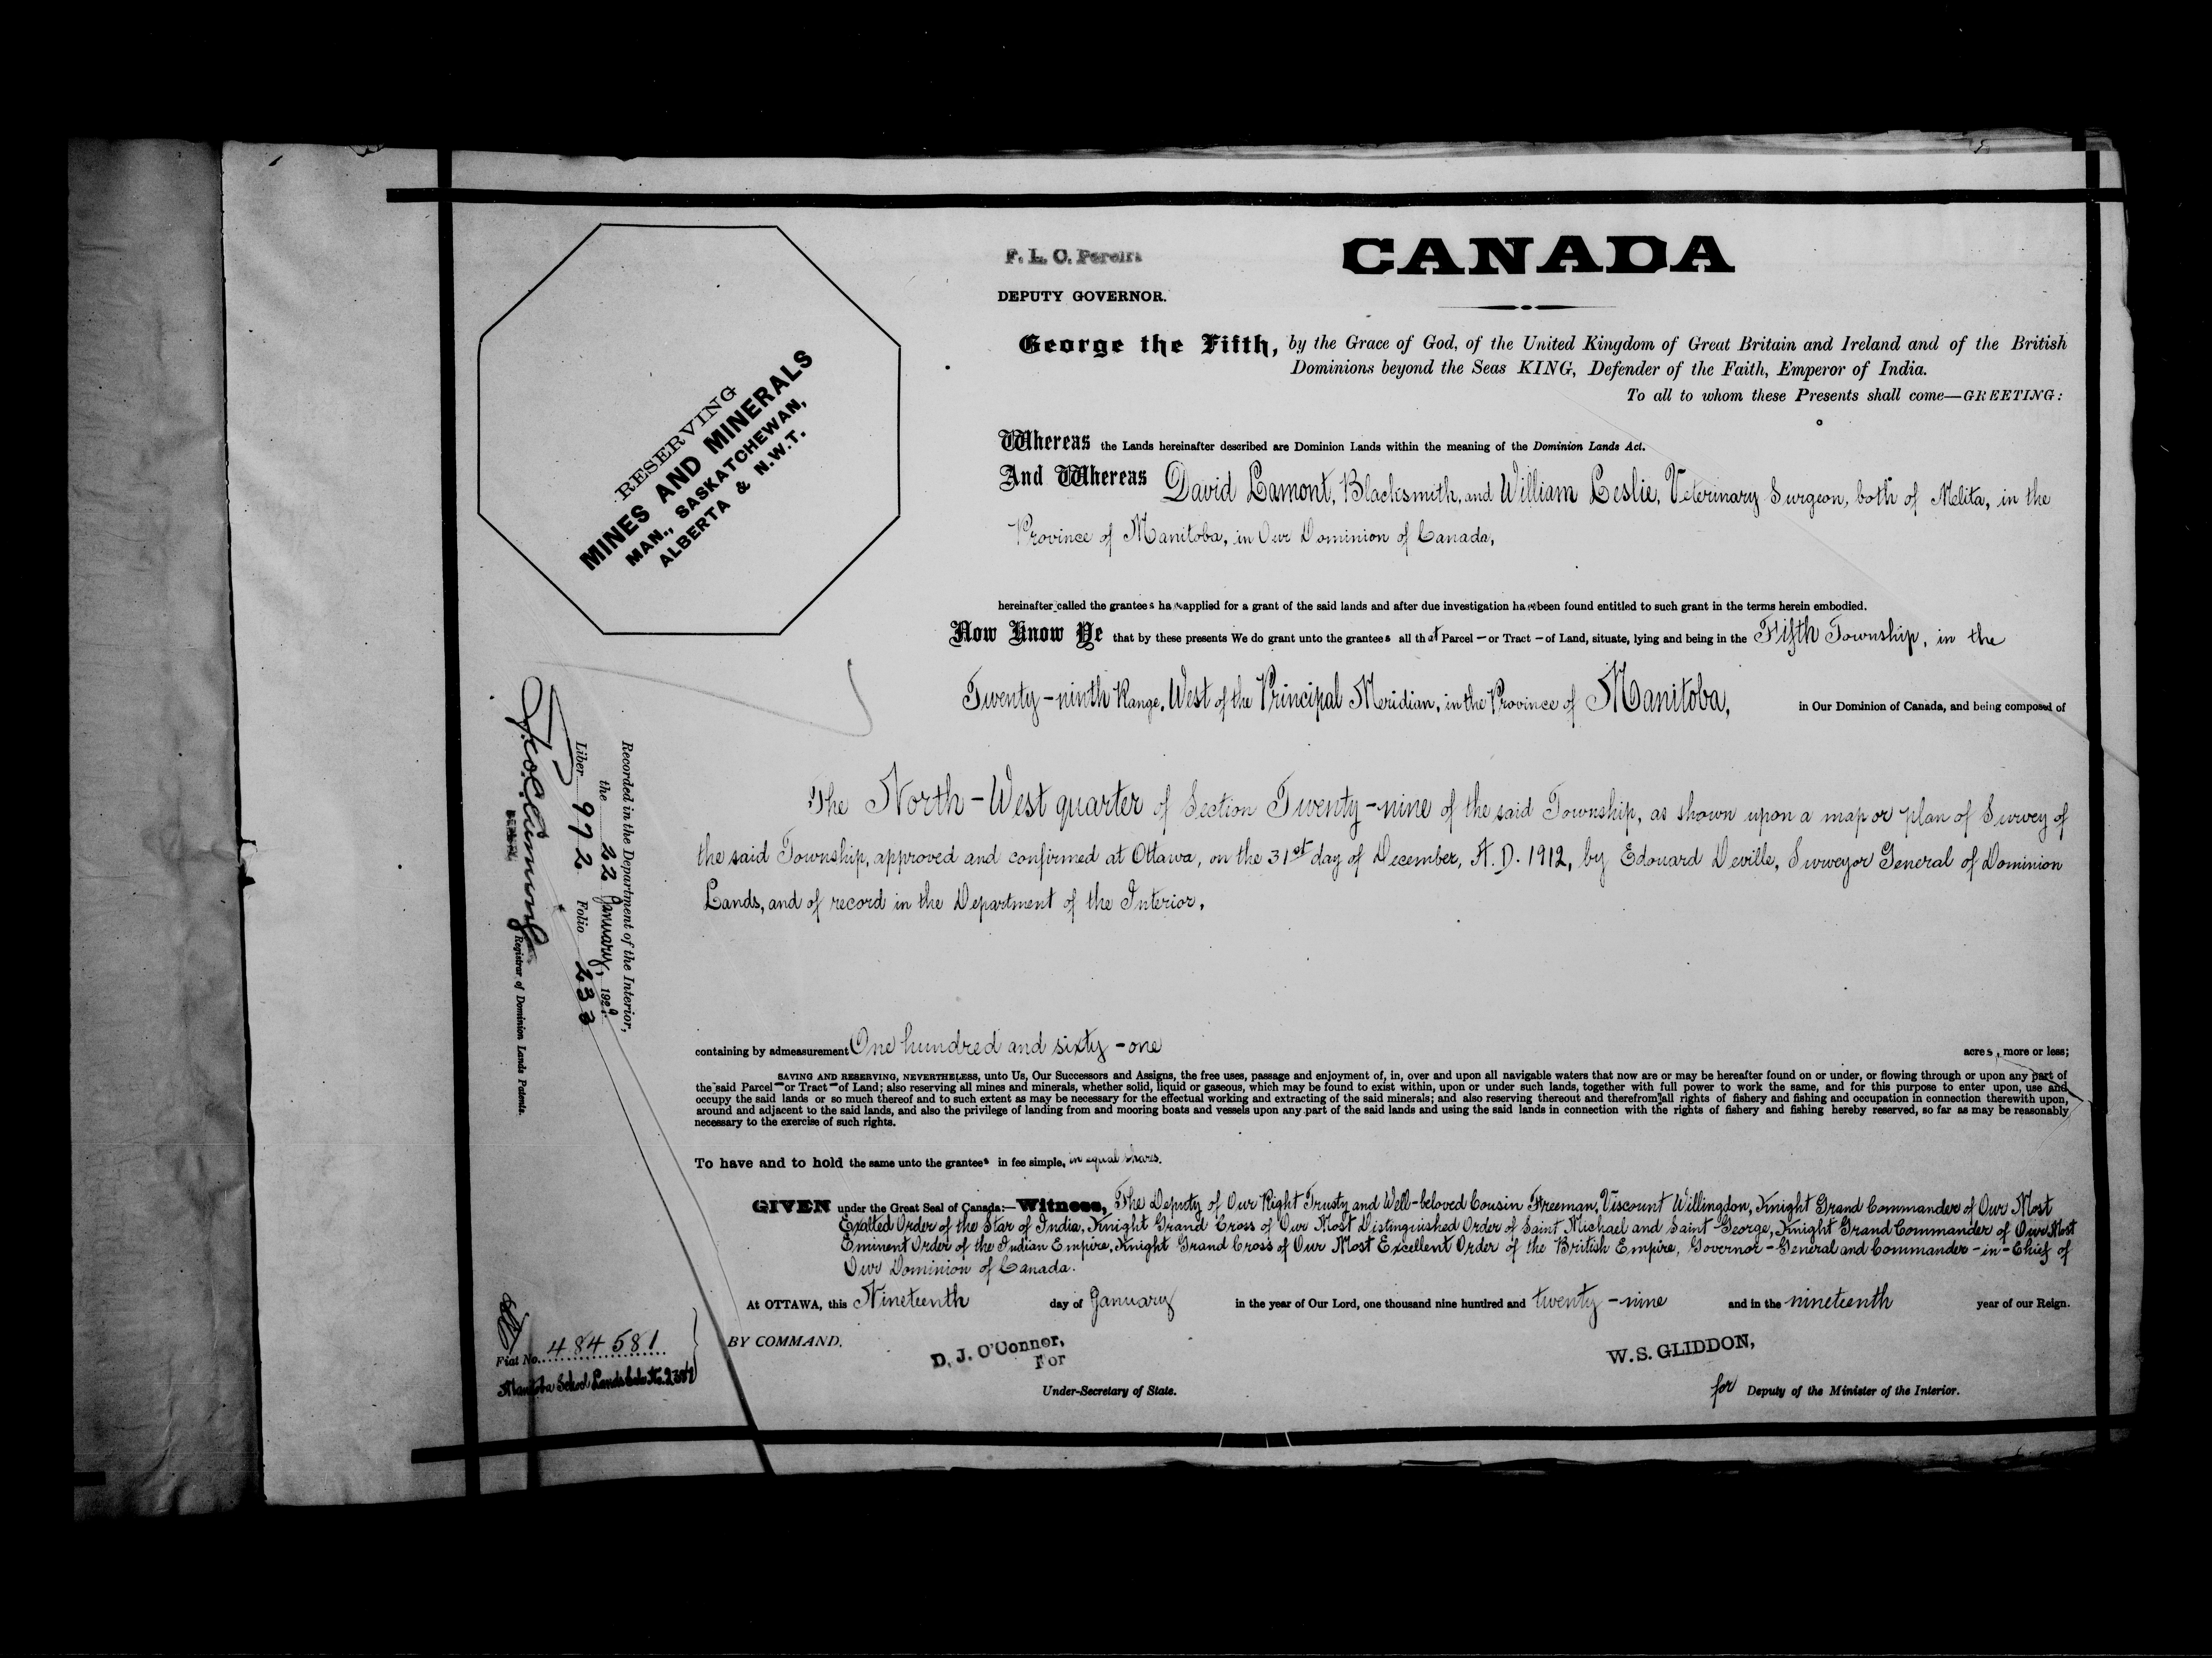 F. L. C. Pereira
DEPUTY GOVERNOR.
CANADA
George the Fifth, by the Grace of God, of the United Kingdom of Great Britain and Ireland and of the British
Dominions beyond the Seas KING, Defender of the Faith, Emperor of India.
To all to whom these Presents shall come—GREETING:
RESERVING
MINES AND MINERALS
MAN., SASKATCHEWAN,
ALBERTA & N.W.T.
Whereas the Lands hereinafter described are Dominion Lands within the meaning of the Dominion Lands Act.
And Whereas David Lamont, Blacksmith, and William Leslie, Veterinary Surgeon, both of Melita, in the
Province of Manitoba, in Our Dominion of Canada,
hereinafter called the grantees have applied for a grant of the said lands and after due investigation have been found entitled to such grant in the terms herein embodied.
Now Know Ye that by these presents We do grant unto the grantees all that Parcel — or Tract — of Land, situate, lying and being in the Fifth Township, in the
Twenty-ninth Range, West of the Principal Meridian, in the Province of Manitoba, in Our Dominion of Canada, and being composed of
The North-West quarter of Section Twenty-nine of the said Township, as shown upon a map or plan of Survey of
the said Township, approved and confirmed at Ottawa, on the 31st day of December, A.D. 1912, by Edouard Deville, Surveyor General of Dominion
Lands, and of record in the Department of the Interior,
containing by admeasurement One hundred and sixty-one acres, more or less;
SAVING AND RESERVING, NEVERTHELESS, unto Us, Our Successors and Assigns, the free uses, passage and enjoyment of, in, over and upon all navigable waters that now are or may be hereafter found on or under, or flowing through or upon any part of
the said Parcel — or Tract — of Land; also reserving all mines and minerals, whether solid, liquid or gaseous, which may be found to exist within, upon or under such lands, together with full power to work the same, and for this purpose to enter upon, use and
occupy the said lands or so much thereof and to such extent as may be necessary for the effectual working and extracting of the said minerals; and also reserving thereout and therefrom all rights of fishery and fishing and occupation in connection therewith upon,
around and adjacent to the said lands, and also the privilege of landing from and mooring boats and vessels upon any part of the said lands and using the said lands in connection with the rights of fishery and fishing hereby reserved, so far as may be reasonably
necessary to the exercise of such rights.
To have and to hold the same unto the grantees in fee simple, in equal shares.
GIVEN under the Great Seal of Canada:— Witness, The Deputy of Our Right Trusty and Well-beloved Cousin Freeman, Viscount Willingdon, Knight Grand Commander of Our Most
Exalted Order of the Star of India, Knight Grand Cross of Our Most Distinguished Order of Saint Michael and Saint George, Knight Grand Commander of Our Most
Eminent Order of the Indian Empire, Knight Grand Cross of Our Most Excellent Order of the British Empire, Governor-General and Commander-in-Chief of
Our Dominion of Canada.
At OTTAWA, this Nineteenth day of January in the year of Our Lord, one thousand nine hundred and twenty-nine and in the nineteenth year of our Reign.
BY COMMAND.
D. J. O'Connor,
For
Under-Secretary of State.
W. S. GLIDDON,
for Deputy of the Minister of the Interior.
Recorded in the Department of the Interior,
the 22 January, 1929.
Liber 972 Folio 233
Registrar of Dominion Lands Patents.
Fiat No. 484581
Manitoba School Lands Sale No.